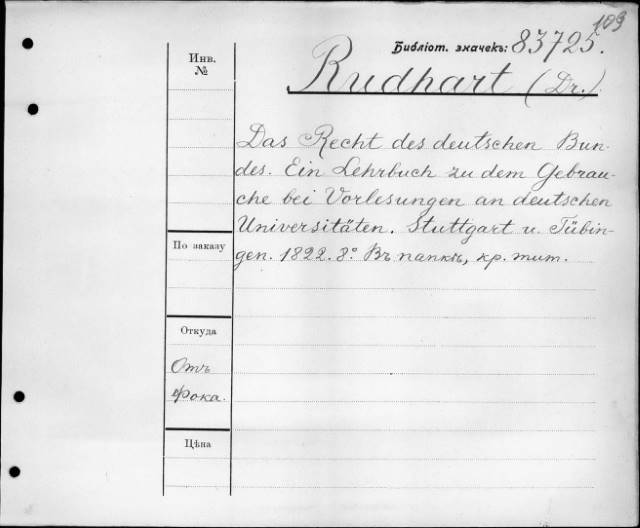 109
Библіот. значекъ: 83725.
Инв.
№
Rudhart (Dr.)
Das Recht des deutschen Bun-
des. Ein Lehrbuch zu dem Gebrau-
che bei Vorlesungen an deutschen
Universitäten. Stuttgart u. Tübin-
gen. 1822. 8º. Въ папкѣ, кр. тит.
По заказу
Откуда
Отъ
Фока.
Цѣна